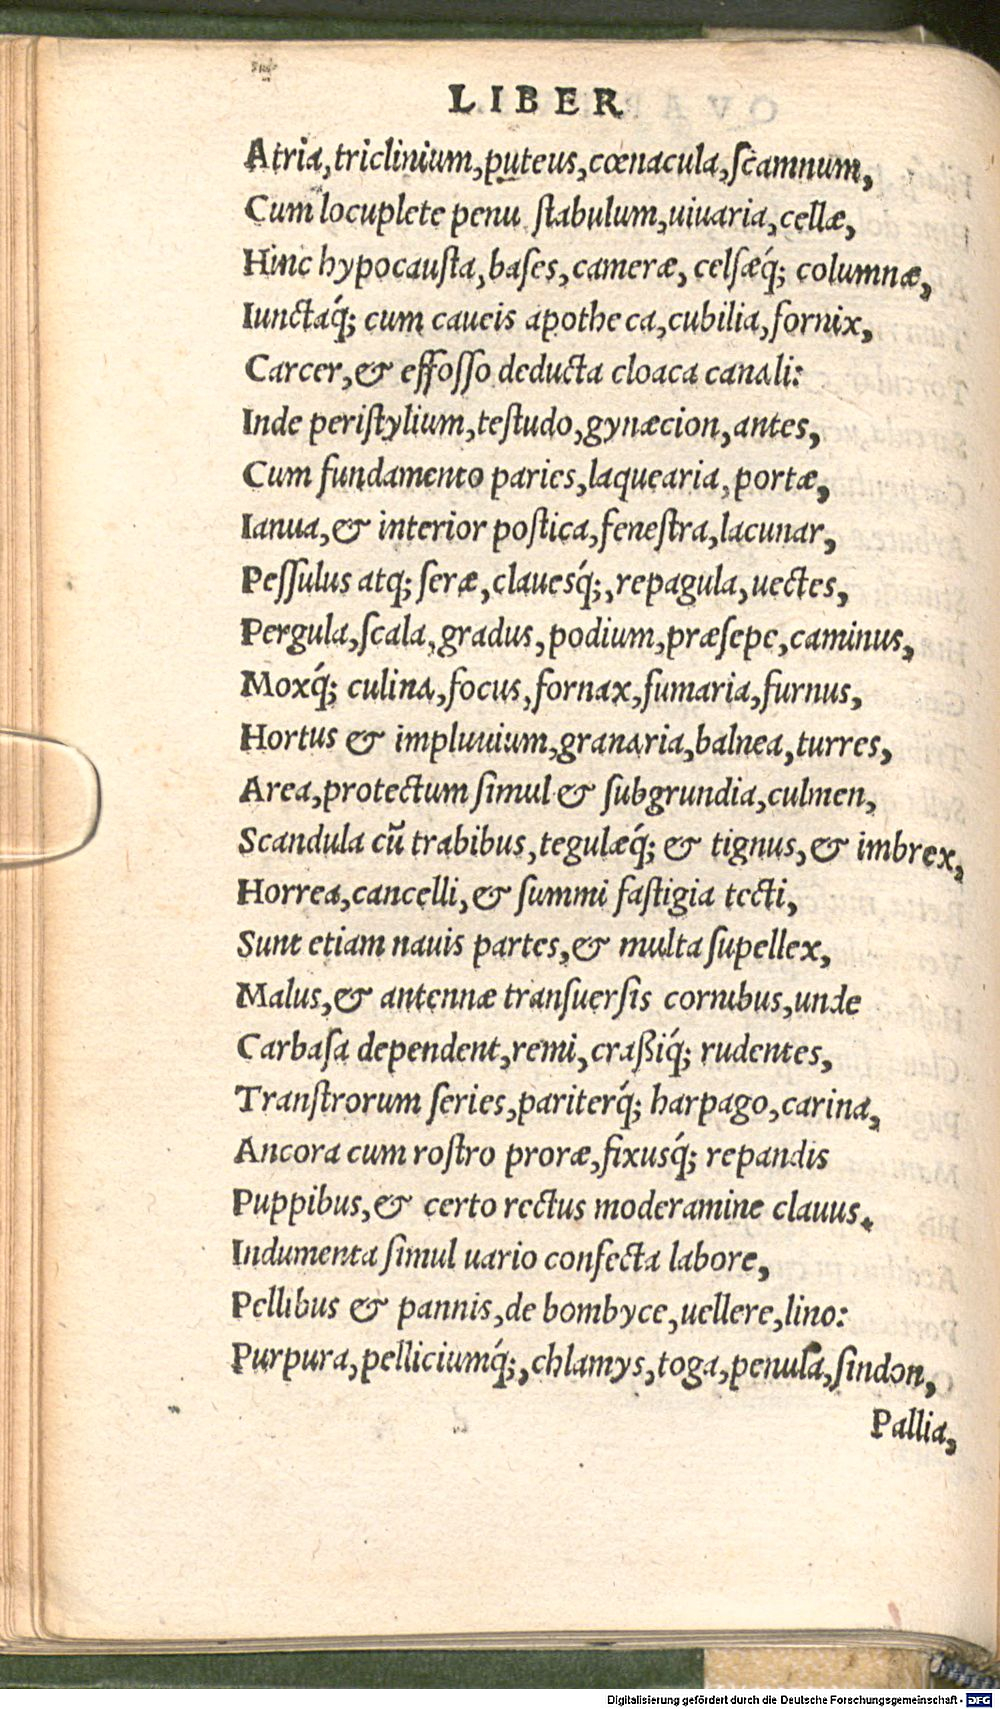 LIBER
Atria,triclinium,puteus,cœnacula,ſcamnum,
Cum locuplete penu ſtabulum,uiuaria,cellæ,
Hinc hypocauſta,baſes,cameræ, celſæq́; columnæ,
Iunctaq́; cum caueis apothe ca,cubilia,fornix,
Carcer,& effoſſo deducta cloaca canali:
Inde periſtylium,teſtudo,gynæcion,antes,
Cum fundamento paries,laquearia,portæ,
Ianua,& interior poſtica,feneſtra,lacunar,
Peſſulus atq; ſeræ,clauesq́;,repagula,uectes,
Pergula,ſcala,gradus,podium,præſepe,caminus,
Moxq́; culina,focus,fornax,fumaria,furnus,
Hortus & impluuium,granaria,balnea,turres,
Area,protectum ſimul & ſubgrundia,culmen,
Scandula cũ trabibus,tegulæq́; & tignus,& imbrex,
Horrea,cancelli,& ſummi faſtigia tecti,
Sunt etiam nauis partes,& multa ſupellex,
Malus,& antennæ tranſuerſis cornibus,unde
Carbaſa dependent,remi,craßiq́; rudentes,
Tranſtrorum ſeries,pariterq́; harpago,carina,
Ancora cum roſtro proræ,fixusq́; repandis
Puppibus,& certo rectus moderamine clauus.
Indumenta ſimul uario confecta labore,
Pellibus & pannis,de bombyce,uellere,lino:
Purpura,pelliciumq́;,chlamys,toga,penula,ſindon,
Pallia,
Digitalisierung gefördert durch die Deutsche Forschungsgemeinschaft - DFG